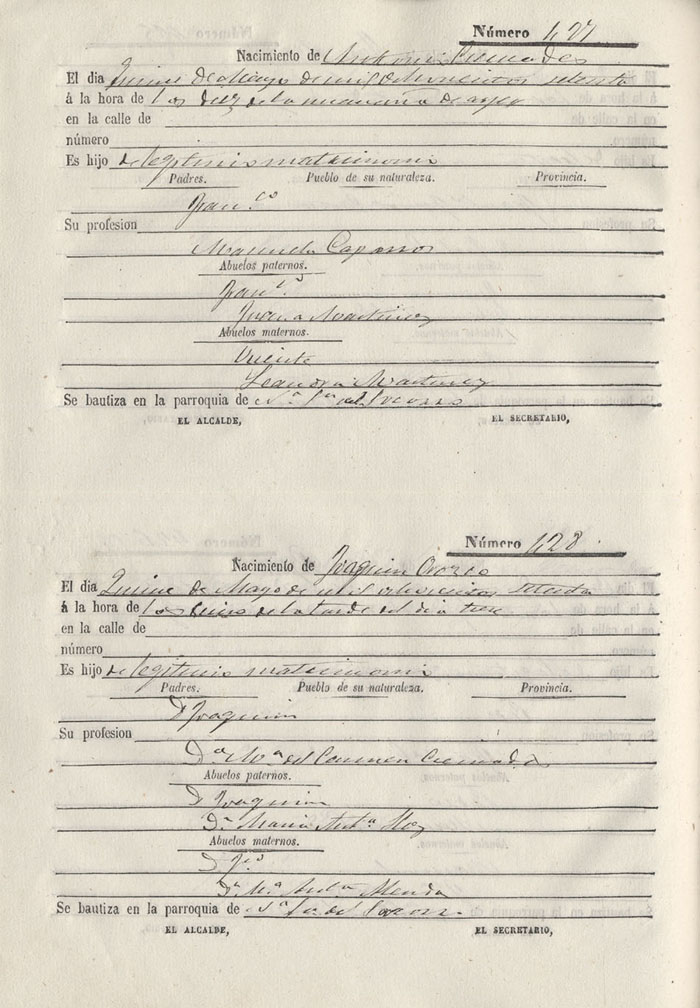 Número 427
Nacimiento de Antonio Cremades
El dia Quince de Mayo de mil ochocientos setenta
á la hora de las diez de la mañana de ayer
en la calle de
número
Es hijo de legitimo matrimonio
Padres. Pueblo de su naturaleza. Provincia.
Fran.co
Su profesion
Manuela Caparros
Abuelos paternos.
Fran.co
Juana Martinez
Abuelos maternos.
Vicente
Leandra Martinez
Se bautiza en la parroquia de N.a S.ra del Socorro
EL ALCALDE, EL SECRETARIO,
Número 428
Nacimiento de Joaquin Orozco
El dia Quince de Mayo de mil ochocientos setenta
á la hora de las cinco de la tarde del dia trece
en la calle de
número
Es hijo de legitimo matrimonio
Padres. Pueblo de su naturaleza. Provincia.
D Joaquin
Su profesion
D.a M.a del Carmen Cremades
Abuelos paternos.
D Joaquin
D.a Maria Ant.a
Abuelos maternos.
D
D.a M.a
Se bautiza en la parroquia de N.a S.a del Socorro
EL ALCALDE, EL SECRETARIO,